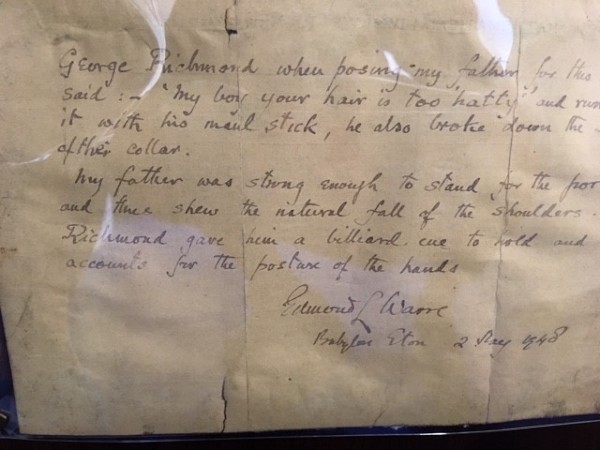 George Richmond when posing my father for this
said :- "My boy your hair is too 'natty'" and
it with his maul stick, he also broke down the
of their collar.
My father was strong enough to stand for the
and thus shew the natural fall of the shoulders.
Richmond gave him a billiard cue to hold and
accounts for the posture of the hands
Edmond L Warre
Eton 2 May 1948